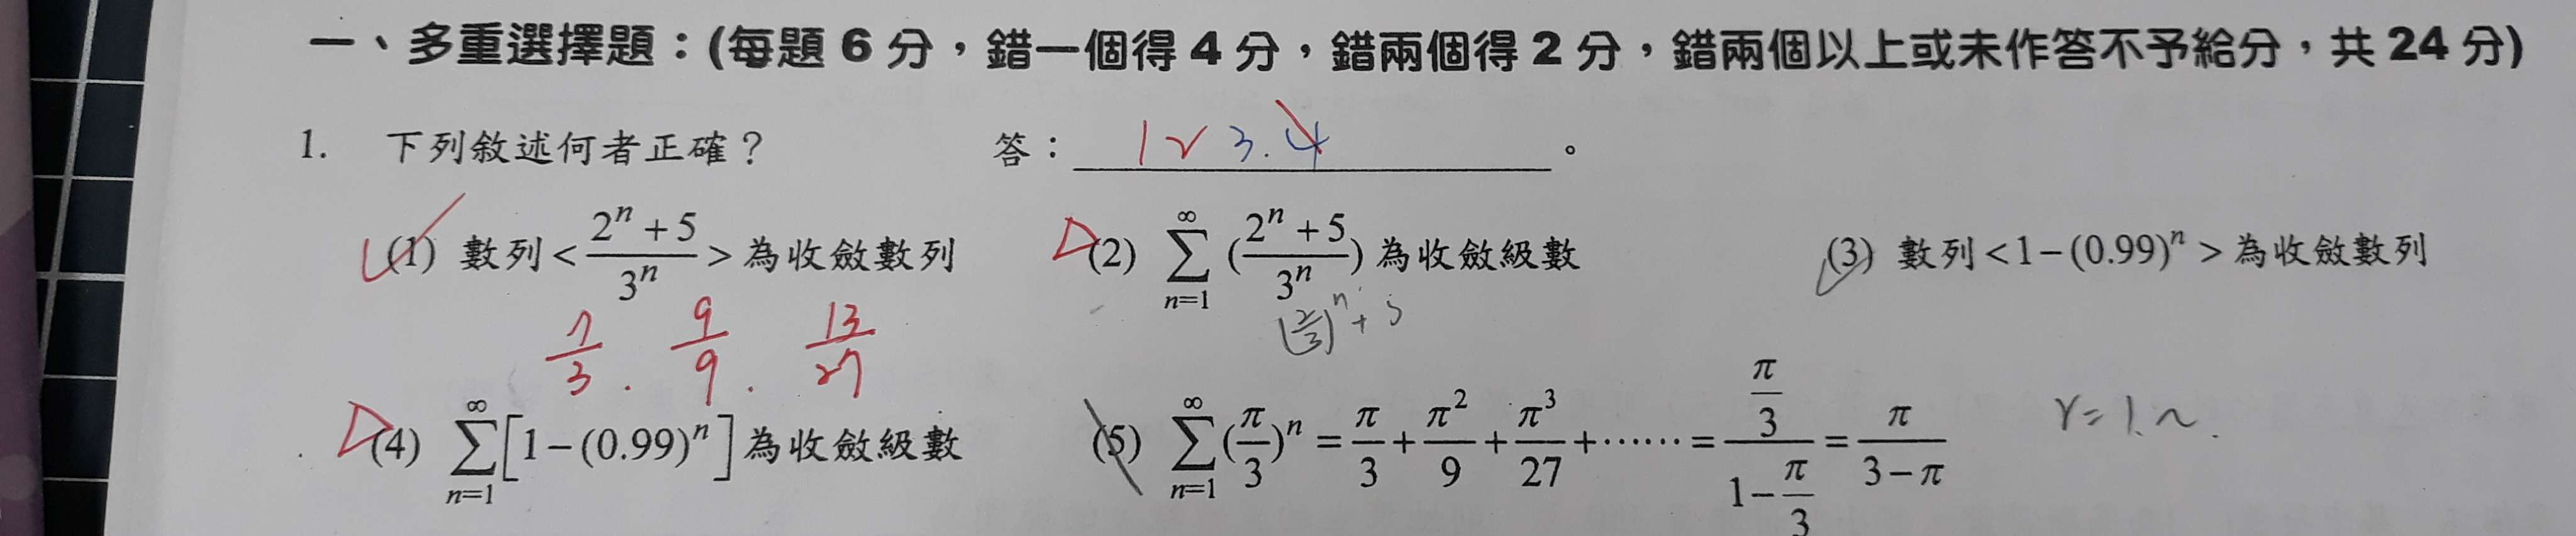 一、多重選擇題：(每題 6 分，錯一個得 4 分，錯兩個得 2 分，錯兩個以上或未作答不予給分，共 24 分)
1. 下列敘述何者正確？ 答： 1 2 3. 4 。
(1) 數列 < \frac{2^n + 5}{3^n} > 為收斂數列 (2) \sum_{n=1}^{\infty} (\frac{2^n + 5}{3^n}) 為收斂級數 (3) 數列 < 1 − (0.99)^n > 為收斂數列
\frac{7}{3} . \frac{9}{9} . \frac{13}{27} (\frac{2}{3})^n + 5
(4) \sum_{n=1}^{\infty} [1 − (0.99)^n] 為收斂級數 (5) \sum_{n=1}^{\infty} (\frac{π}{3})^n = \frac{π}{3} + \frac{π^2}{9} + \frac{π^3}{27} + ⋯⋯ = \frac{\frac{π}{3}}{1 − \frac{π}{3}} = \frac{π}{3 − π} r = 1.~